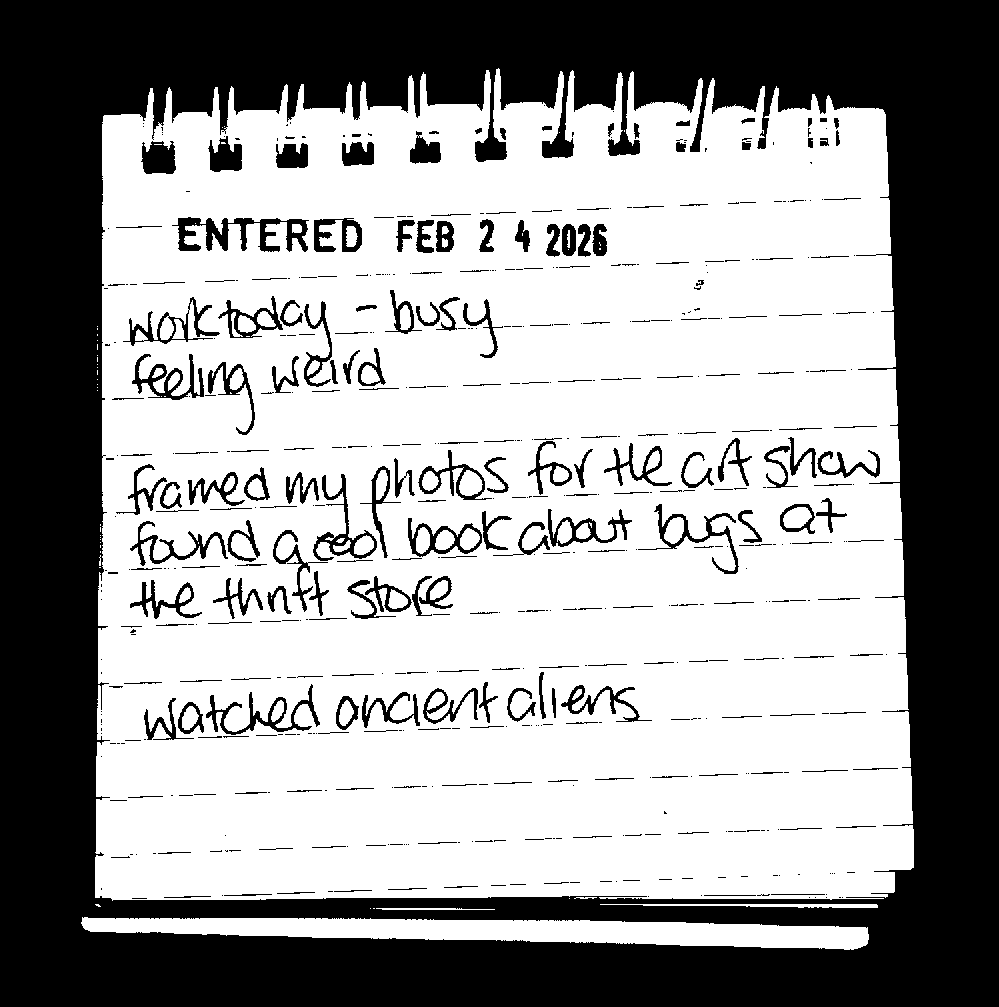 ENTERED FEB 24 2026
work today - busy
feeling weird
framed my photos for the art show
found a cool book about bugs at
the thrift store
watched ancient aliens